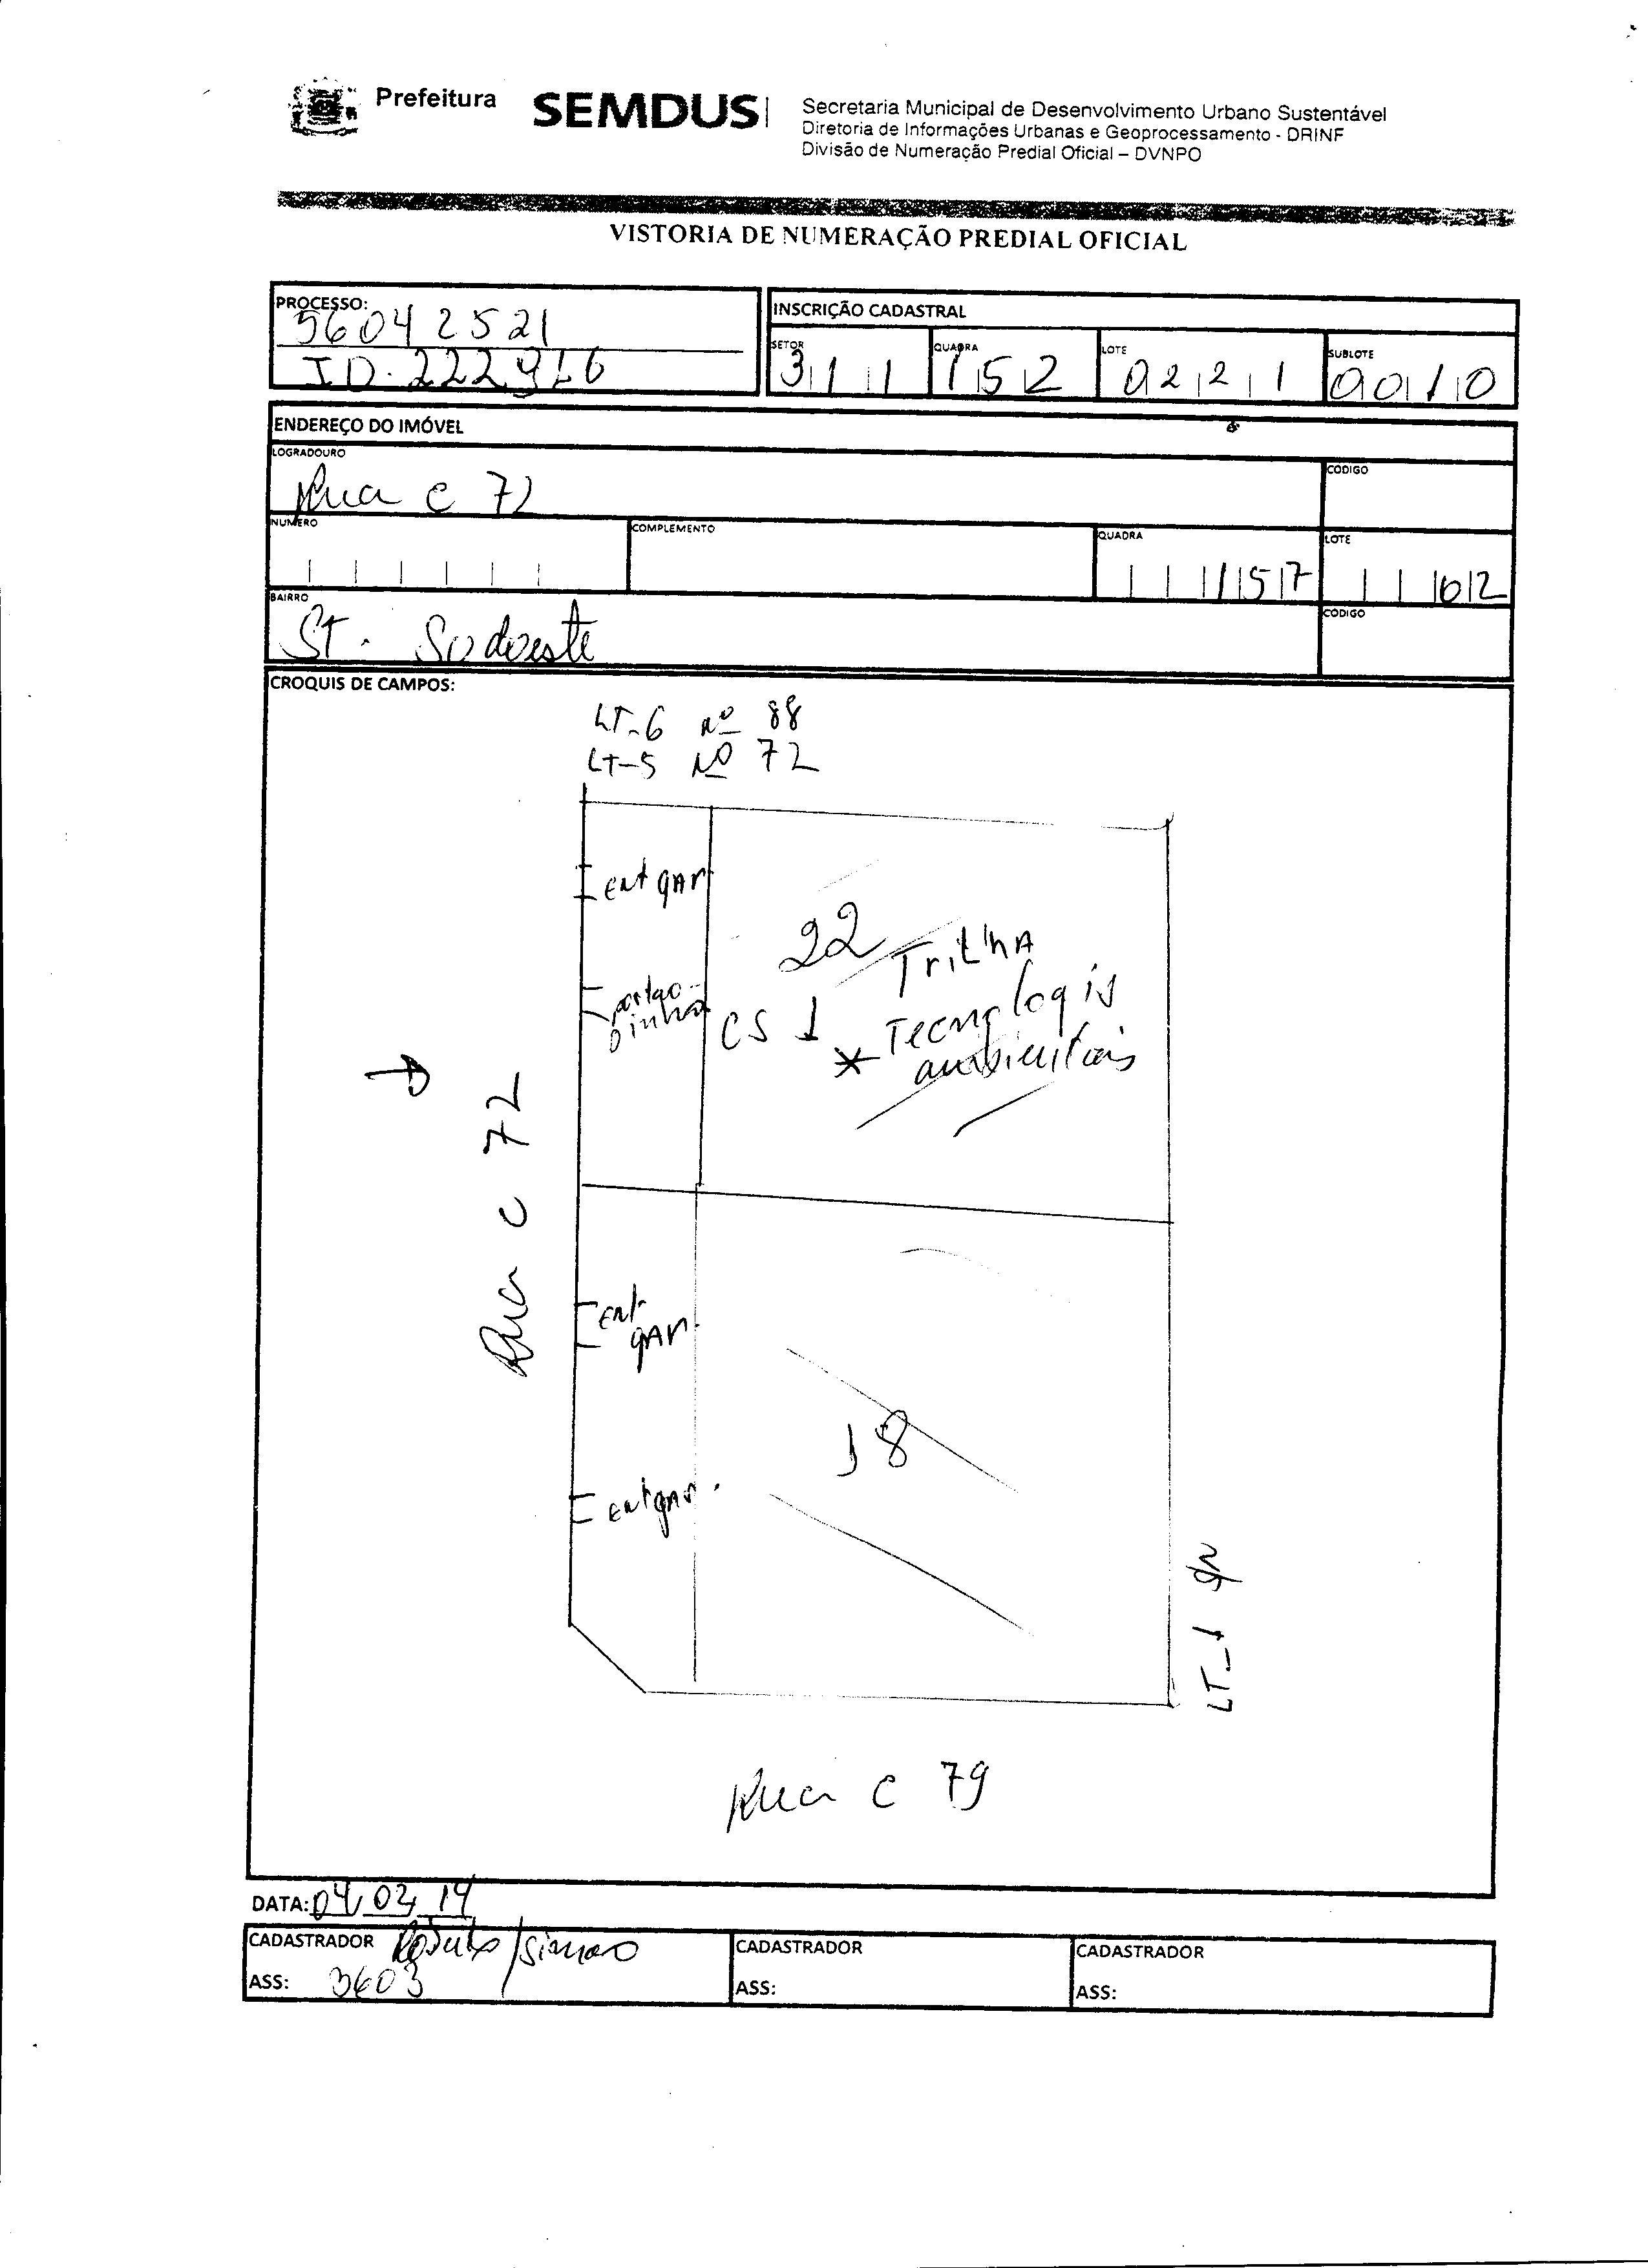 Prefeitura
SEMDUS
Secretaria Municipal de Desenvolvimento Urbano Sustentável
Diretoria de Informações Urbanas e Geoprocessamento - DRINF
Divisão de Numeração Predial Oficial – DVNPO
VISTORIA DE NUMERAÇÃO PREDIAL OFICIAL
PROCESSO:
56042521
ID. 222926
INSCRIÇÃO CADASTRAL
SETOR QUADRA LOTE SUBLOTE
311 152 0221 0010
ENDEREÇO DO IMÓVEL
LOGRADOURO
CODIGO
Rua C 72
NUMERO COMPLEMENTO QUADRA LOTE
157 02
BAIRRO
CODIGO
ST. Sudoeste
CROQUIS DE CAMPOS:
LT-6 Nº 88
LT-5 Nº 72
Ent gar
22
Trilha
portao-
zinho
CS 1
* Tecnologis
ambientais
Rua C 72
Ent
gar
18
Ent gar.
LT-1
Rua C 79
DATA: 04 02 14
CADASTRADOR /Simao
ASS: 3603
CADASTRADOR
ASS:
CADASTRADOR
ASS: